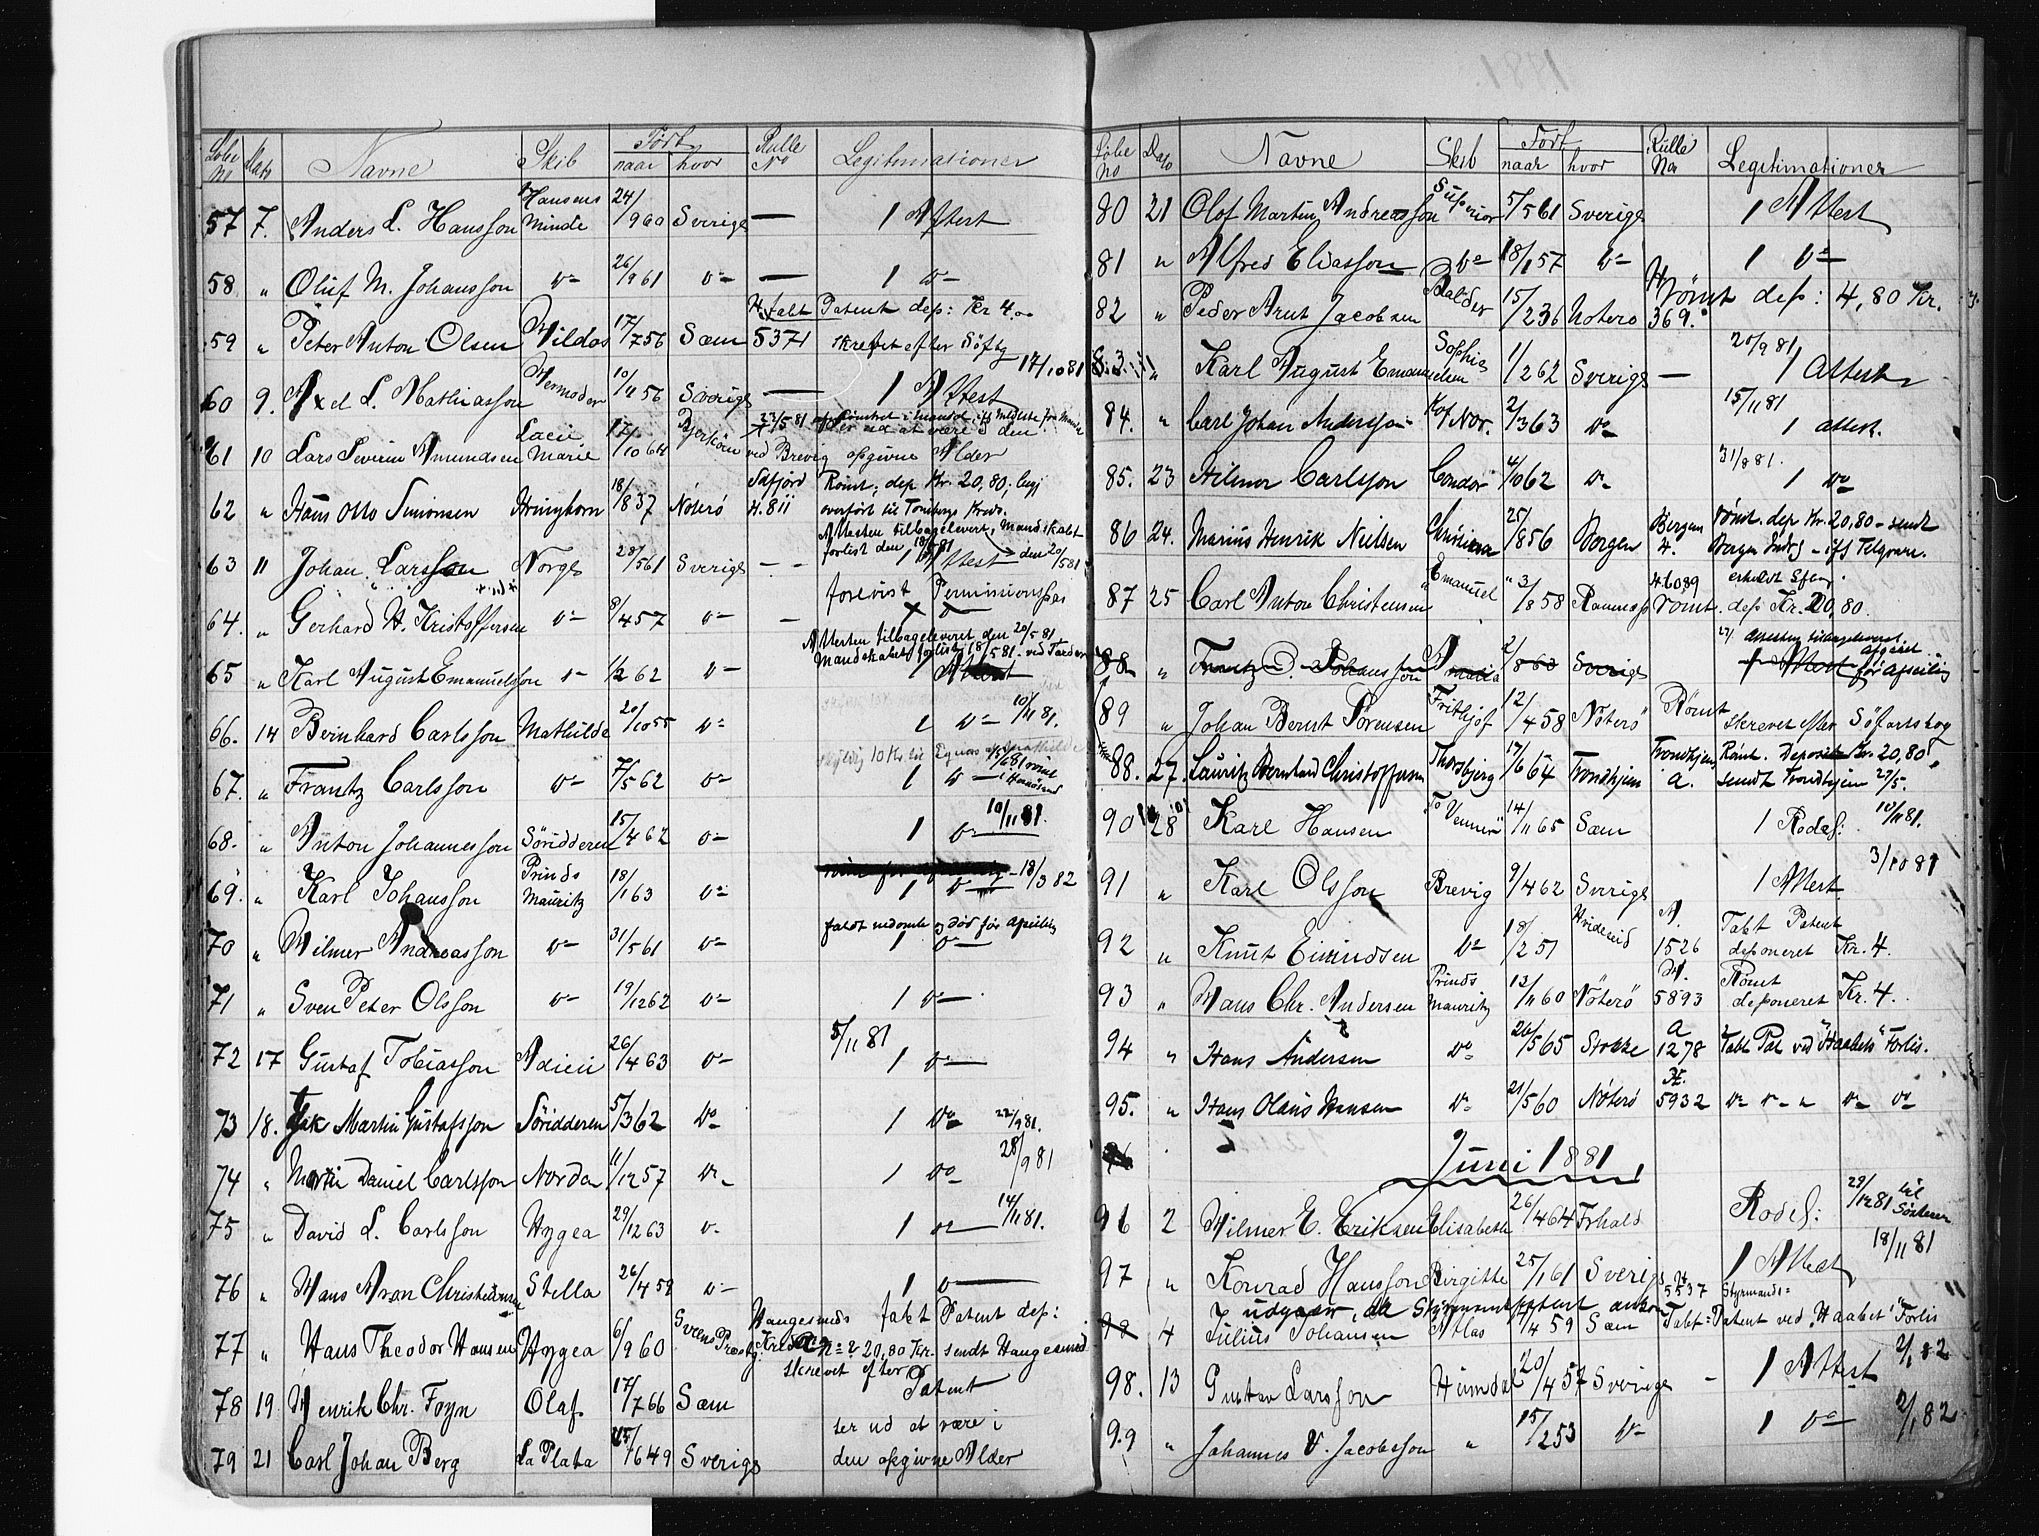 Løbe No Dato Navne Skib Født naar hvor Rulle No Legitimationer
57 7. Anders L. Hansson Hansens Minde 24/9 60 Sverige — 1 Attest
58 " Oluf M. Johansson do 26/9 61 do — 1 do
H. tabt Patent dep: Kr 4.00
59 " Peter Anton Olsen 17/7 56 Sæm 5371 skrevet efter
17/10 81
60 9. Axel L. Mathiasson Vermoder 10/11 56 Sverige — 1 Attest
23/5 81
ser ud at være i den
61 10 Lars Severin Amundsen Marie 10 64 ved Brevig opgivne Alder
62 " Hans Otto Simonsen Hringhorn 18/8 37 Nøterø H. 811 Rømt, dep Kr. 20,80,
overført til Tønsbergs Kreds.
Attesten tilbageleveret, Mandskabet
forlist den 18/5 81 den 20/5 81
63 11 Johan Larsson Norge 28/5 61 Sverige - - 1 Attest
forevist Permissionspas
64. " Gerhard H. Kristoffersen do 8/4 57 do -
Attesten tilbageleveret den 20/5 81
Mandskabet forlist 18/5 81. ved
65 " Karl August Emanuelsson do 1/2 62 do 1 Attest
66. 14 Bernhard Carlsson Mathilde 20/10 55 do 1 do 10/11 81.
67. " Frantz Carlsson do 7/5 62 do 1 do
68. " Anton Johannesson Søridderen 15/4 62 do 1 do 10/11 81.
69. " Karl Johansson Prinds Mauritz 18/1 63 do 1 do 18/3 82
faldt nedomle og død før Afseiling
70 " Wilmer Andreasson do 31/5 61 do 1 do
71 " Sven Peter Olsson do 19/12 62 do 1 do
5/11 81
72 17 Gustaf Tobiasson 26/4 63 do 1 do
73 18. Martin Gustafsson Søridderen 5/3 62 do 1 do 22/9 81.
74 " Martin Daniel Carlsson Nordan 11/12 57 do 1 do 28/9 81
75 " David L. Carlsson Hygea 29/12 63 do 1 do 14/11 81.
76 " Hans Aron Christiansen Stella 26/4 59 do 1 do
Haugesunds tabt Patent dep:
77 " Hans Theodor Hansen Hygea 6/9 60 Kreds 20,80 Kr. sendt Haugesund
skrevet efter
78 19. Henrik Chr. Foyn Olaf 17/7 66 Sæm Patent
ser ud at være i
79 21 Carl Johan Berg La Plata 6 49 Sverige den opgivne Alder
1881.
Løbe No Dato Navne Skib Født naar hvor Rulle No Legitimationer
80 21 Olof Martin Andreasson Superior 5/5 61 Sverige 1 Attest
81 " Alfred Eliasson do 18/1 57 do 1 do
82 " Peder Arnt Jacobsen Balder 15/2 36 Nøterø 369. Rømt dep: 4,80 Kr.
20/9 81
83 " Karl August Emanuelsen Sophie 1/2 62 Sverige — 1 Attest
15/11 81
84. " Carl Johan Andersson K of Nor. 2/3 63 do 1 attest.
31/8 81.
85. 23 Hilmer Carlsson Condor 4/10 62 do 1 do
86 24. Marius Henrik Nielsen Christiana 25/8 56 Bergen Bergen 4. Rømt. dep Kr. 20,80 - sendt
Bergen
87 25 Carl Anton Christensen Emanuel 3/8 58 H. 6089 Rømt. dep Kr. 20,80.
Attesten tilbageleveret
88 " Frantz O. Johansson Maria 2/8 60 Sverige 1 Attest før Afseiling
89 " Johan Bernt Sørensen Frithjof 12/4 58 Nøterø Rømt skrevet efter Søfartslog
88. 27. Lauritz Bernhard Christoffersen Thorsbjerg 17/6 64 Trondhjem Trondhjem a. Rømt. Deposit Kr. 20,80,
sendt Trondhjem 27/5.
90 28 Karl Hansen To Venner 14/11 65 Sæm 1 Rodes: 10/11 81.
3/10 81
91 " Karl Olsson Brevig 9/4 62 Sverige 1 Attest
92 " Knut Eivindsen do 18/2 51 Hvideseid A. 1526 Tabt Patent
deponeret Kr. 4
93 " Hans Chr. Andersen Prinds Mauritz 13/11 60 Nøterø 5893 Rømt
deponeret Kr. 4.
94 " Hans Andersen do 26/5 65 Stokke a 1278 Tabt Pat ved "Haabets" Forlis.
95. " Hans Olaus Hansen do 21/5 60 Nøterø H. 5932 do do " do do
Juni 1881.
96 2 Wilmer E. Eriksen Elisabeth 26/4 64 Rodes: 29/12 81 til
97 " Konrad Hansson Birgitte 25/1 61 Sverige 1 Attest 18/11 81
udgaar, da Styrmandspatent
98 4 Julius Johansen Atlas 4 59 Sæm 5537 Styrmands= Tabt Patent ved "Haabet" Forlis
98. 13 Gustav Larsson Heimdal 20/4 57 Sverige - 1 Attest 2/1 82
99 " Johannes V. Jacobsson " 15/2 53 do 1 do 2/1 82